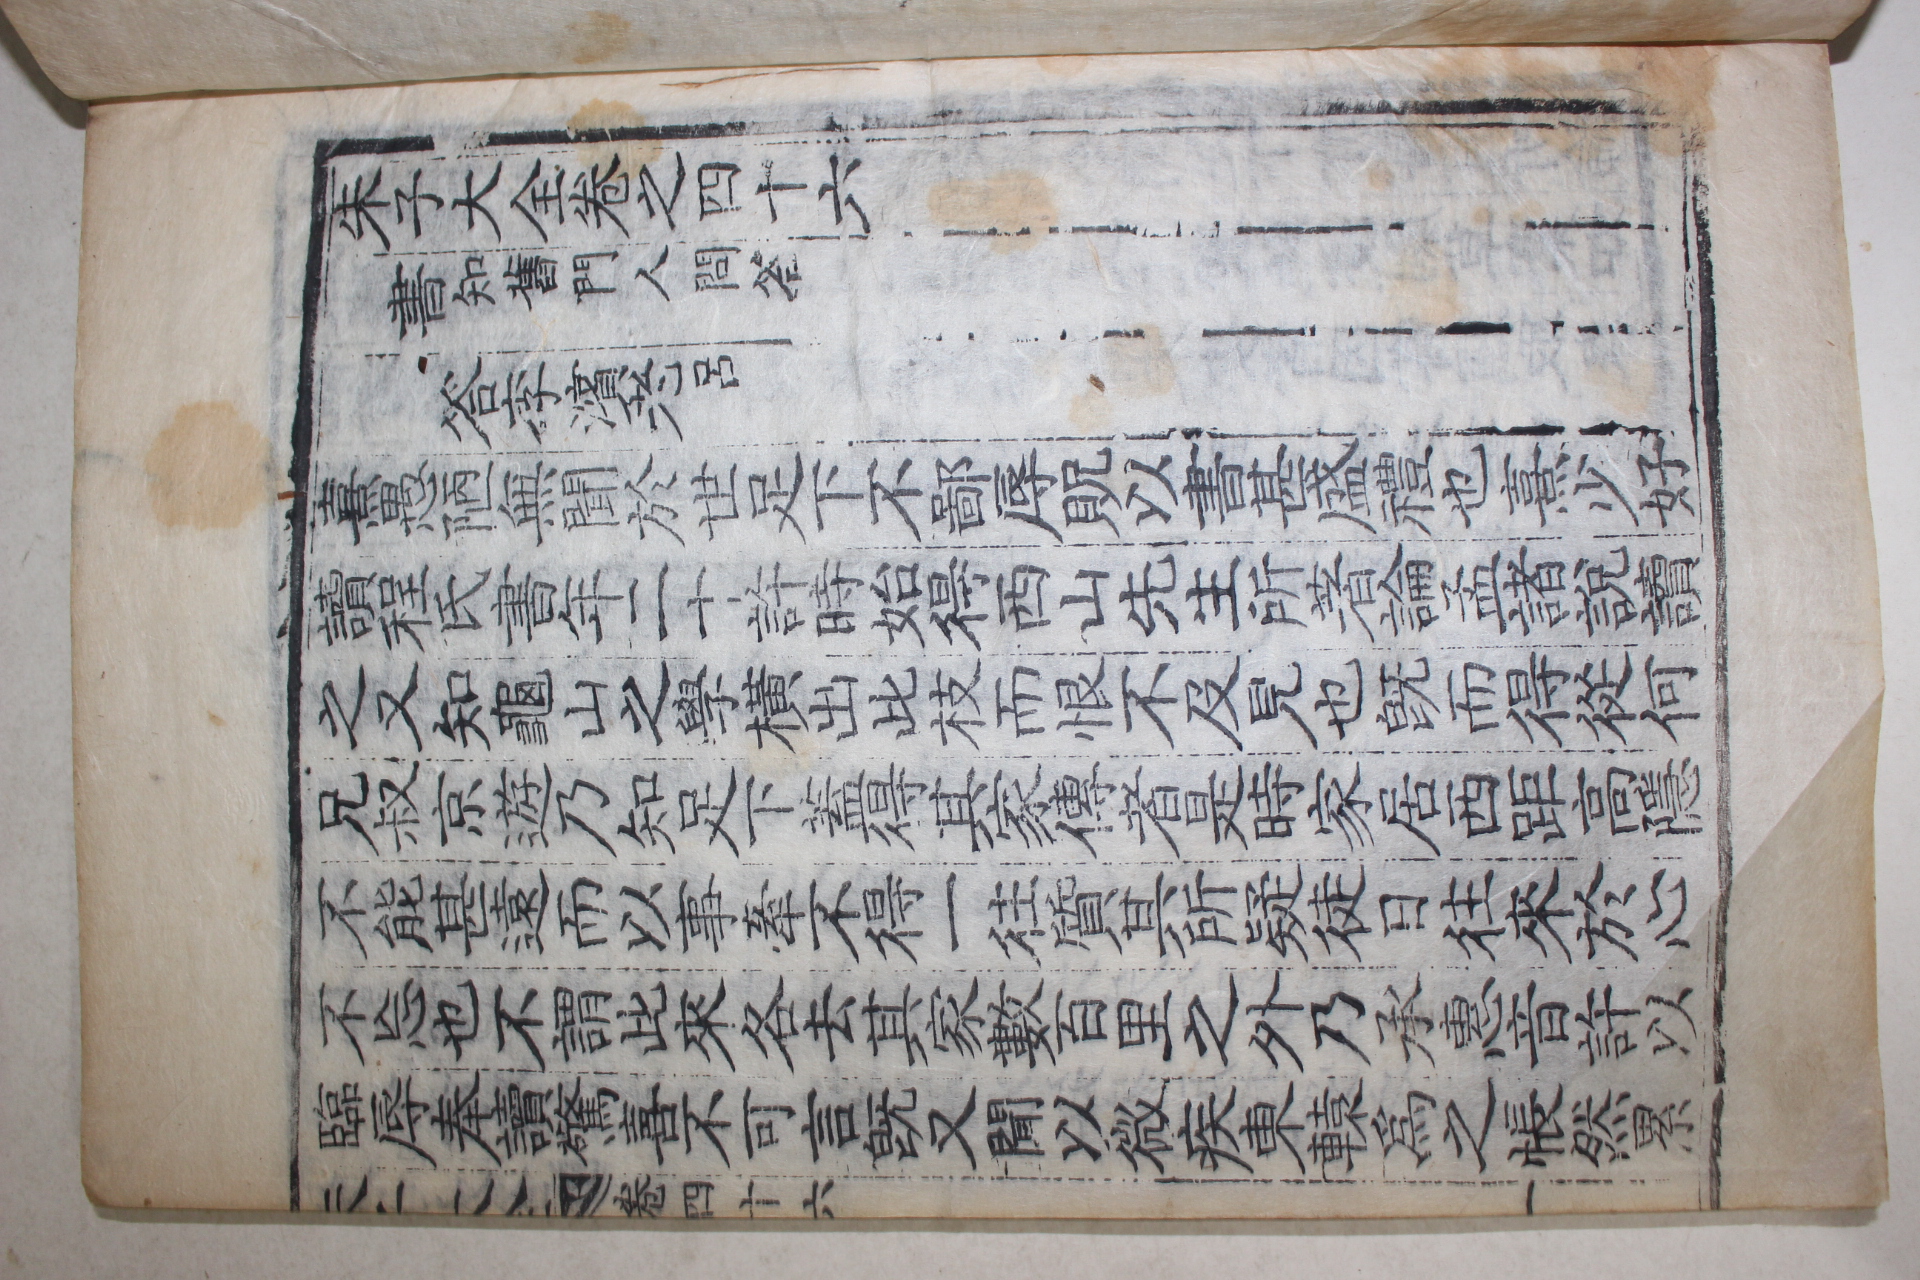 朱子大全卷之四十六
書知舊門人問答
答李濱老呂
熹愚陋無聞於世足下不鄙辱貺以書甚盛禮也熹少好
讀程氏書年二十許時始得西山先生所著論孟諸說讀
之又知龜山之學橫出此枝而恨不及見也既而得從何
兄叔京遊乃知足下蓋得其家傳者是時家居西距高隱
不能甚遠而以事牽不得一往質其所疑徒日往來於心
不忘也不謂比來各去其家數百里之外乃承惠音許以
臨辱奉讀驚喜不可言既又聞以微疾東轅為之悵然累
卷四十六